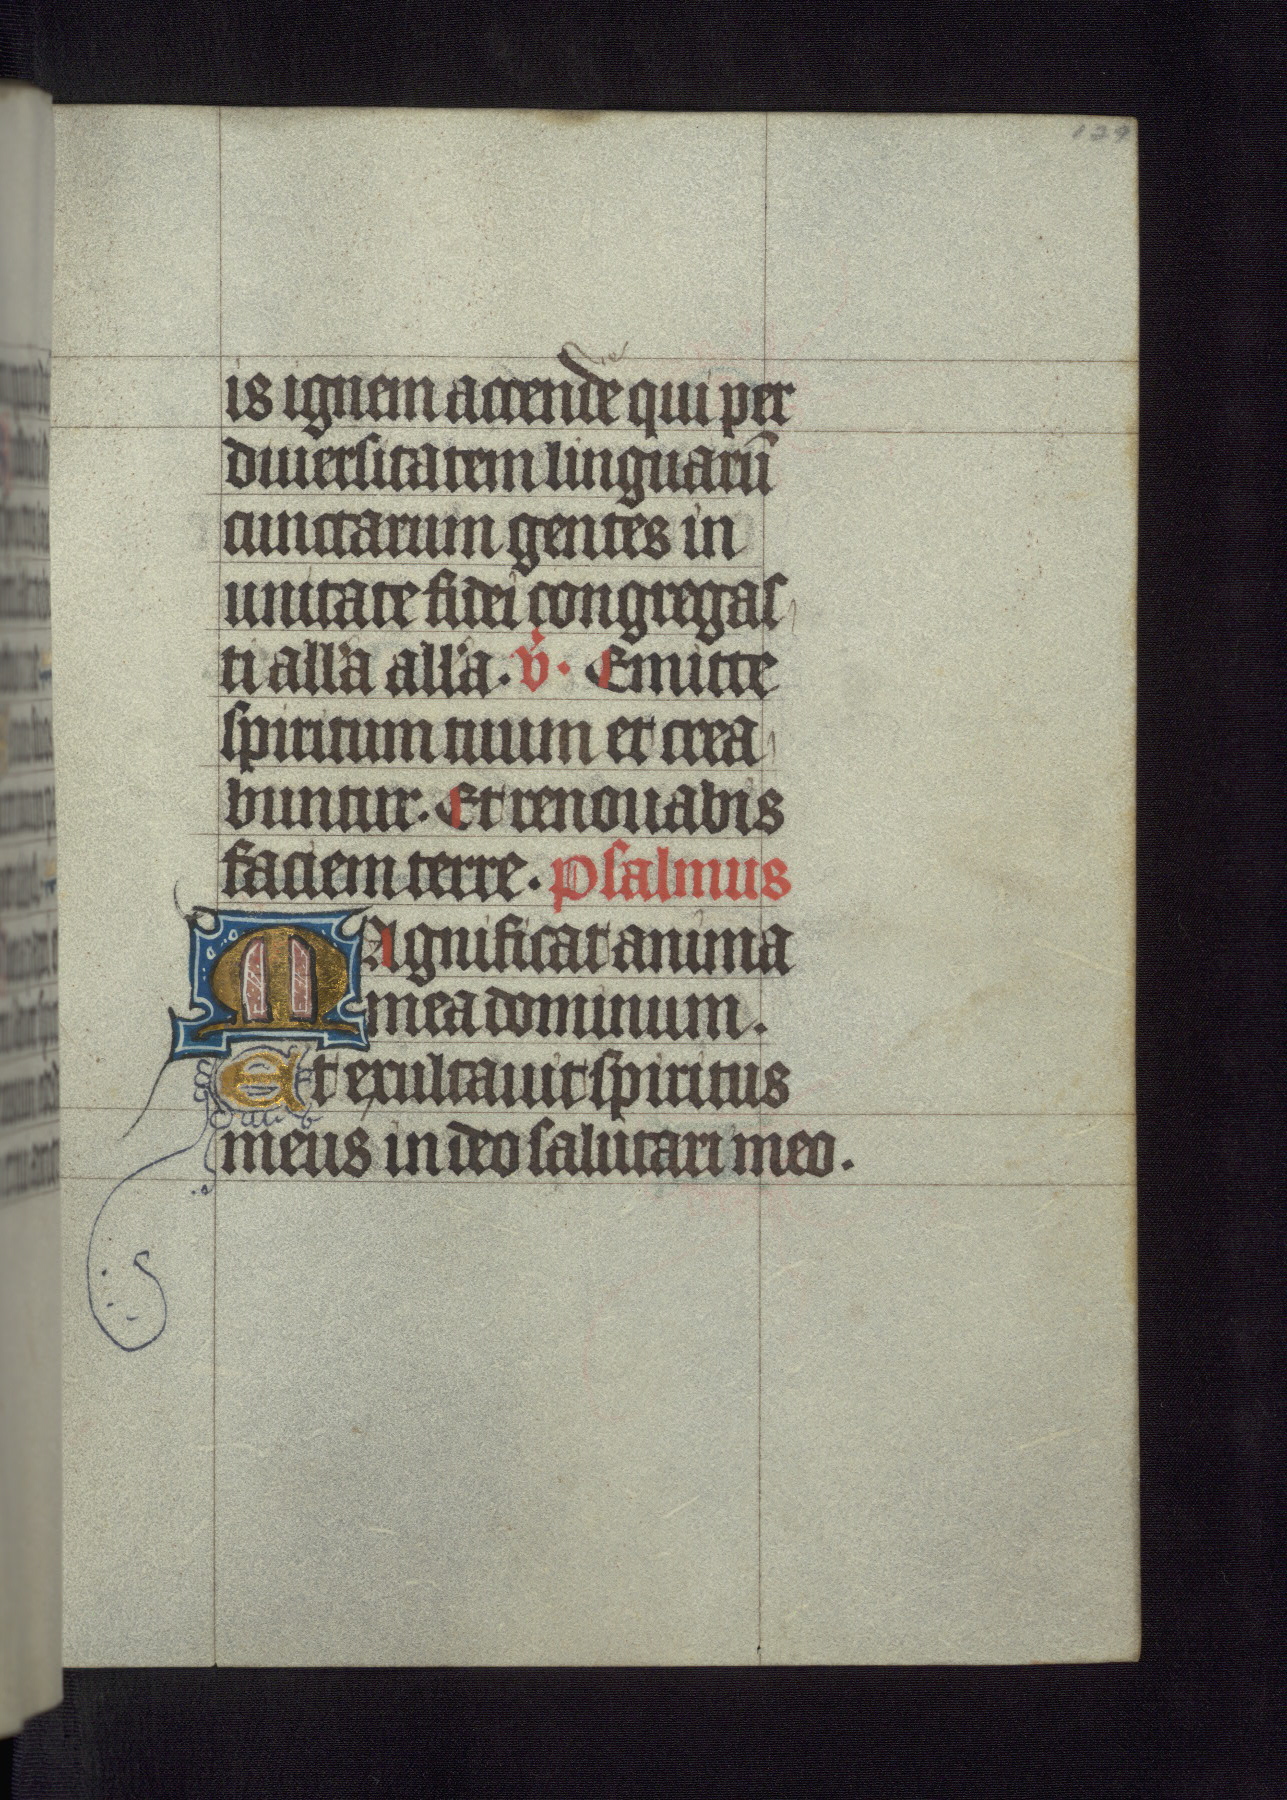 129
is ignem accende qui per
diuersitatem linguarū
cunctarum gentes in
unitate fidei congregas
ti all'a all'a. v̇. Emitte
spiritum tuum et crea
buntur. Et renouabis
faciem terre. psalmus
MAgnificat anima
mea dominum.
Et exultauit spiritus
meus in deo salutari meo.